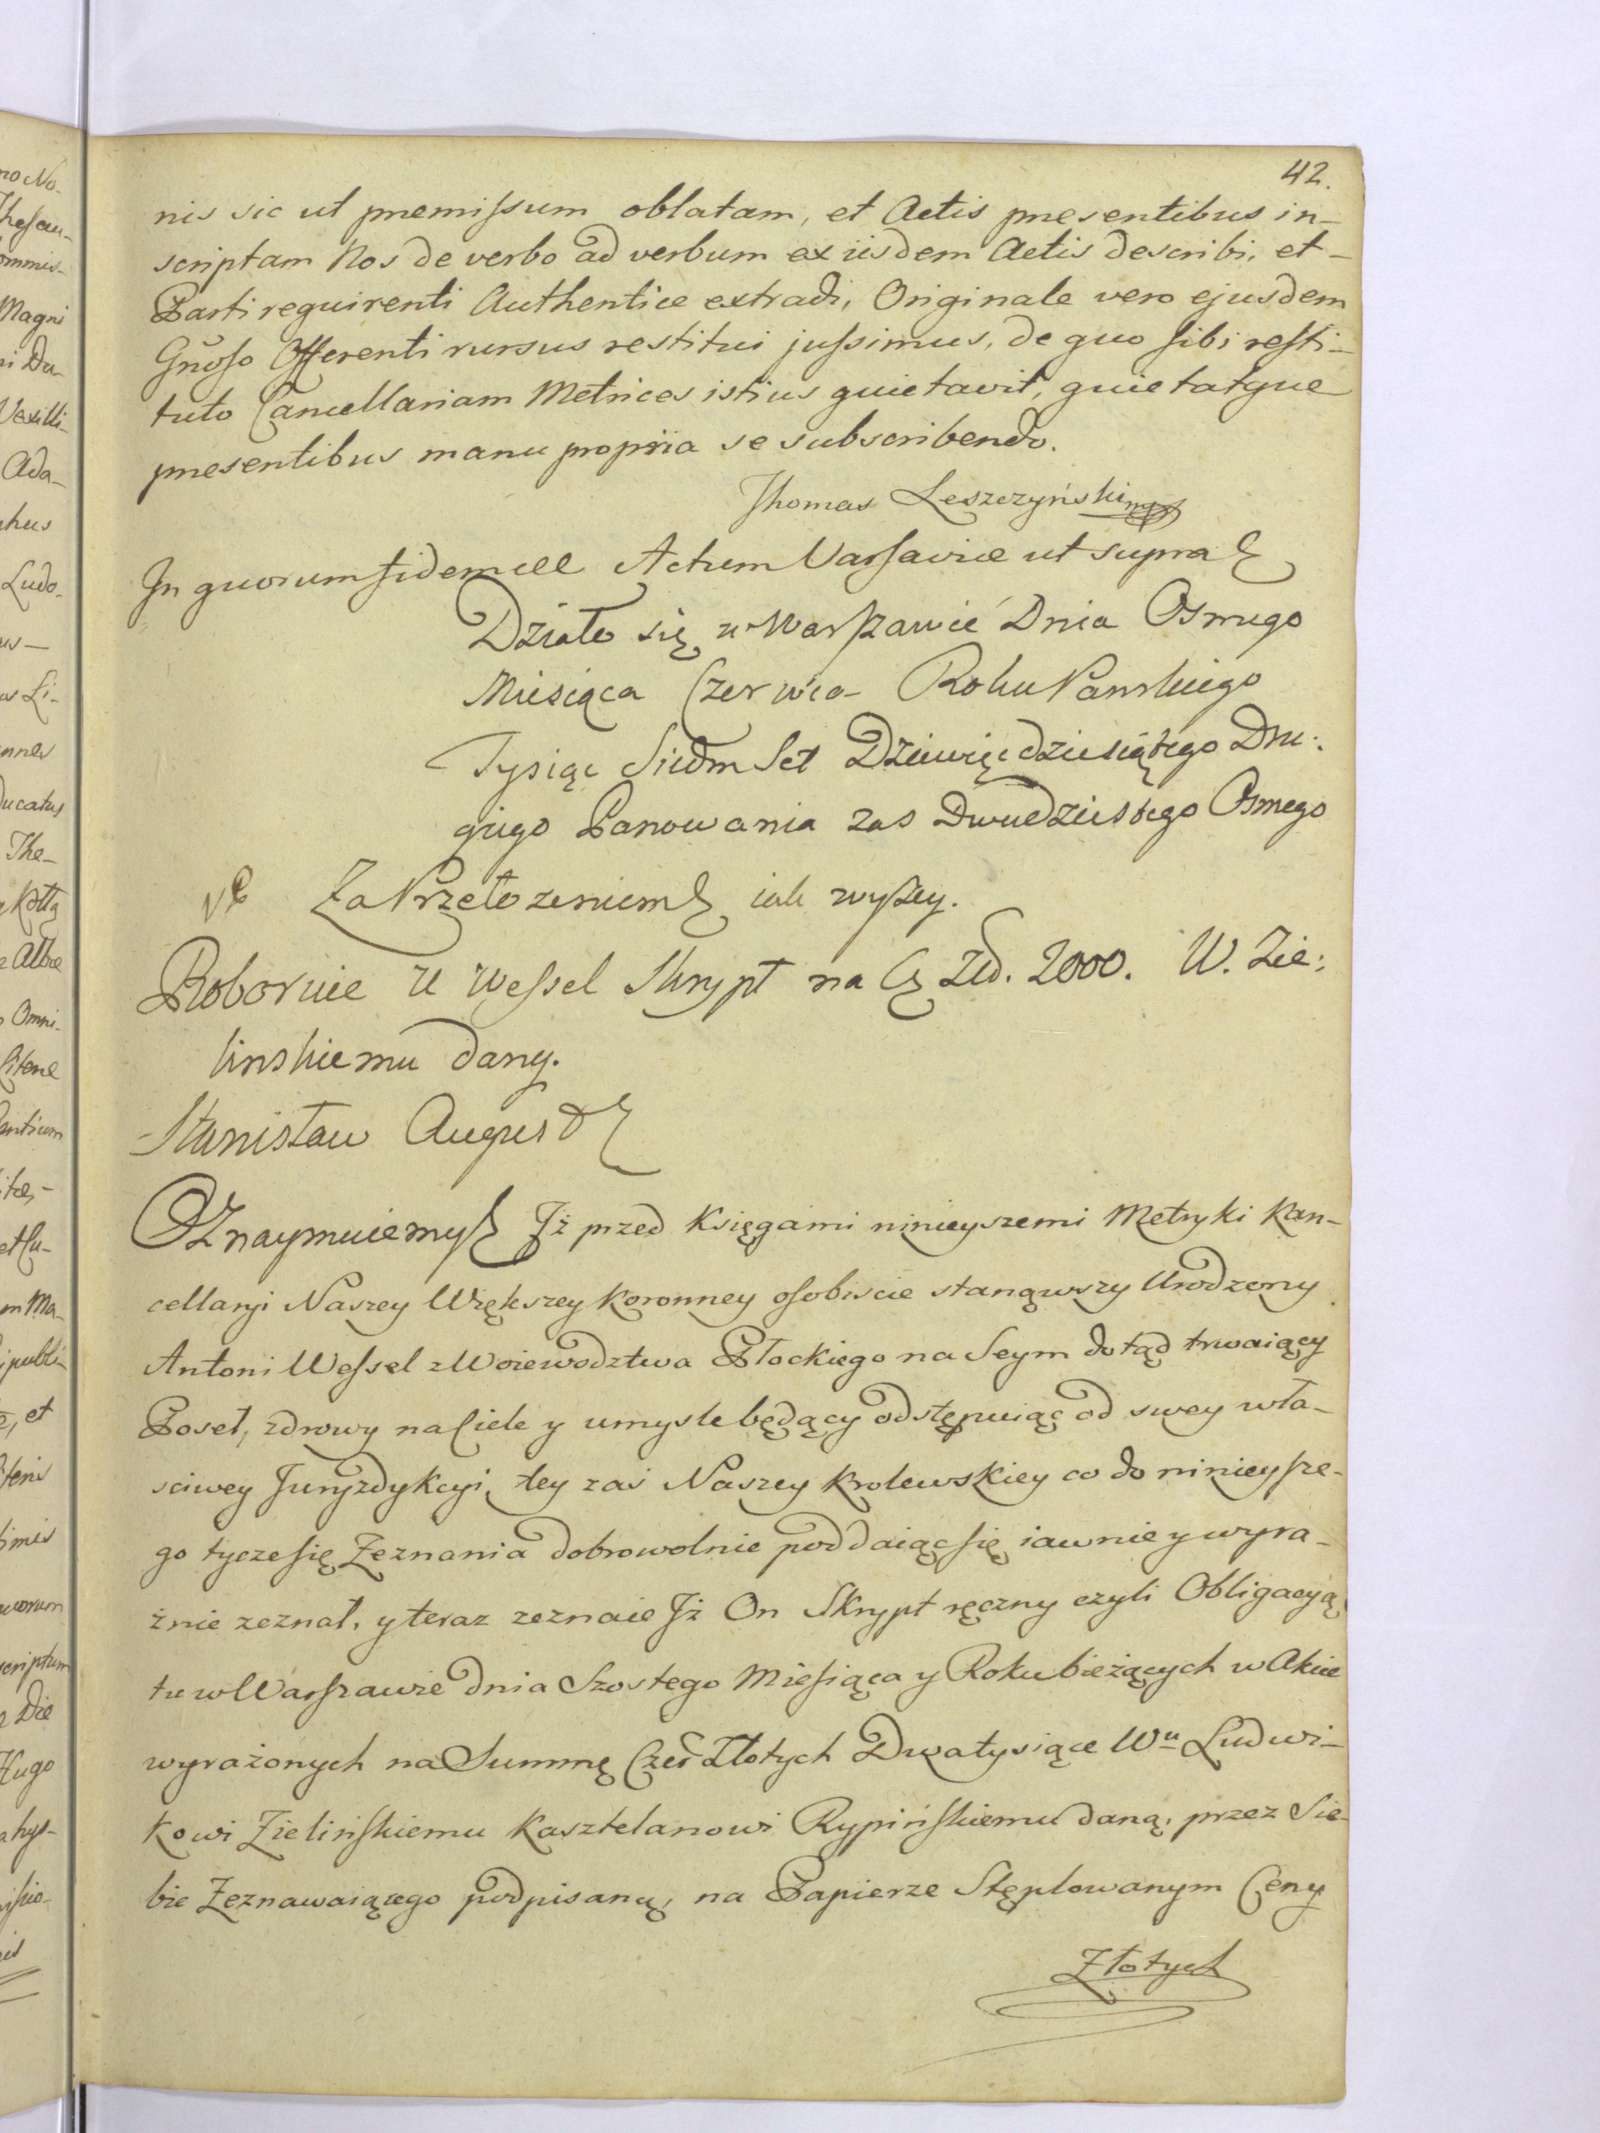 42.
nis sic ut premissum oblatam, et Actis presentibus in-
scriptam Nos de verbo ad verbum ex iisdem Actis describi, et-
Parti requirenti Authentice extradi, Originale vero ejusdem
Gnoso Offerenti rursus restitui jussimus, de quo sibi resti-
tuto Cancellariam Metrices istius quietavit, quietatque
presentibus manu propria se subscribendo.
Thomas Leszczyński mp
In quorum fidem Actum Varsaviae ut supra
Działo się w Warszawie Dnia Osmego
Miesiąca Czerwca Roku Panskiego
Tysiąc Siedm Set Dziewięcdziesiątego Dru-
giego Panowania zas Dwudziestego Osmego
Za Przełozeniem iak wyszey.
Roboruie U Wessel Skrypt na Cz Zld. 2000. W. Zie-
linskiemu dany.
Stanisław August
Oznaymuiemy Iż przed Księgami ninieyszemi Metryki Kan-
cellaryi Naszey Większey Koronney osobiscie stanąwszy Urodzony
Antoni Wessel z Woiewodztwa Płockiego na Seym dotąd trwaiący
Poseł, zdrowy na Ciele y umysle będący odstępuiąc od swey wła-
sciwey Juryzdykcyi, tey zaś Naszey Krolewskiey co do ninieysze-
go tycze się Zeznania dobrowolnie poddaiąc się iawnie y wyra-
źnie zeznał, y teraz zeznaie Iż On Skrypt ręczny czyli Obligacyą
tu w Warszawie dnia Szostego Miesiąca y Roku bieżących w Akcie
wyrażonych na Summę Czer Złotych Dwatysiące Wu Ludwi-
kowi Zielińskiemu Kasztelanowi Rypińskiemu daną, przez Sie-
bie Zeznawaiącego podpisaną, na Papierze Stęplowanym Ceny
Złotych